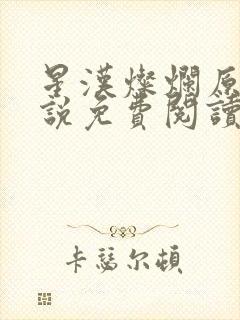 星漢燦爛原
說免費閱讀
卡瑟尔頓